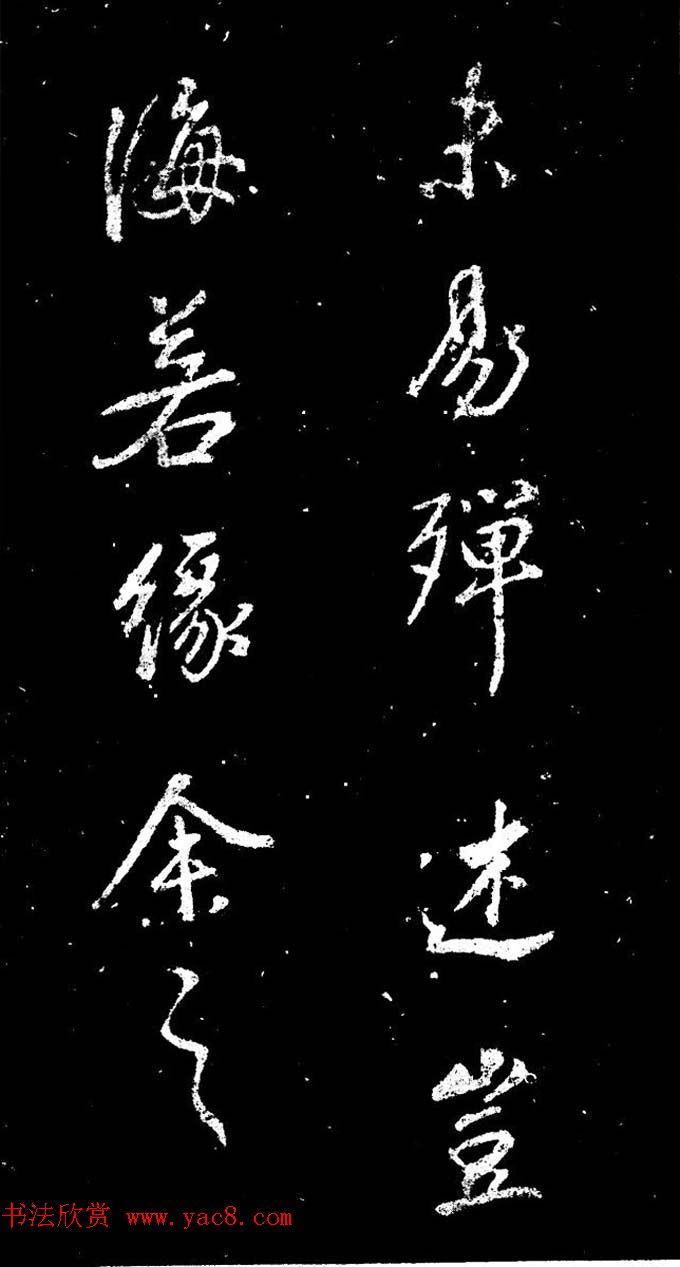 未易殫述豈
海若緣余之
书法欣赏 www.yac8.com